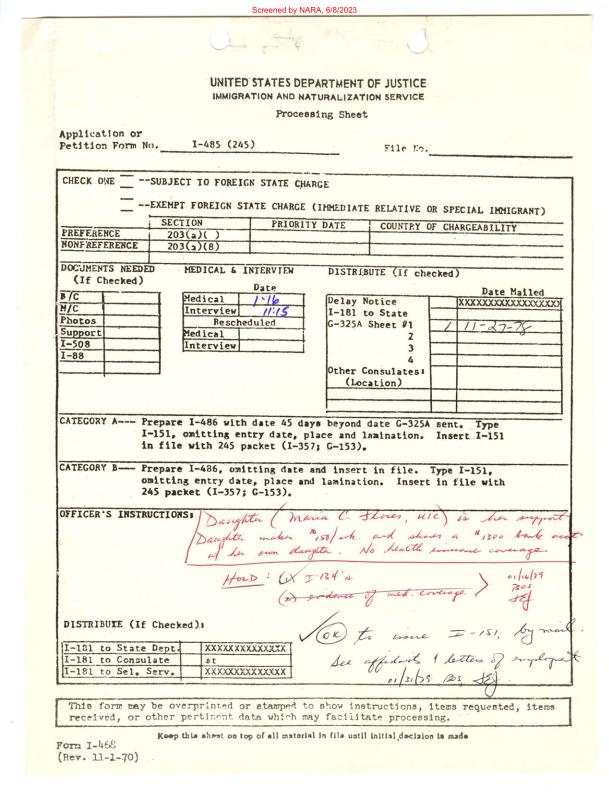 Screened by NARA, 6/8/2023
UNITED STATES DEPARTMENT OF JUSTICE
IMMIGRATION AND NATURALIZATION SERVICE
Processing Sheet
Application or
Petition Form No. I-485 (245) File No.
CHECK ONE --SUBJECT TO FOREIGN STATE CHARGE
--EXEMPT FOREIGN STATE CHARGE (IMMEDIATE RELATIVE OR SPECIAL IMMIGRANT)
SECTION PRIORITY DATE COUNTRY OF CHARGEABILITY
PREFERENCE 203(a)( )
NONPREFERENCE 203(a)(8)
DOCUMENTS NEEDED
(If Checked)
B/C
M/C
Photos
Support
I-508
I-88
MEDICAL & INTERVIEW
Date
Medical 1-16
Interview 11:15
Rescheduled
Medical
Interview
DISTRIBUTE (If checked)
Date Mailed
Delay Notice XXXXXXXXXXXXXXXXX
I-181 to State
G-325A Sheet #1 1 11-27-78
2
3
4
Other Consulates:
(Location)
CATEGORY A--- Prepare I-486 with date 45 days beyond date G-325A sent. Type
I-151, omitting entry date, place and lamination. Insert I-151
in file with 245 packet (I-357; G-153).
CATEGORY B--- Prepare I-486, omitting date and insert in file. Type I-151,
omitting entry date, place and lamination. Insert in file with
245 packet (I-357; G-153).
OFFICER'S INSTRUCTIONS: Daughter (Maria C. Flores, USC) is her support
Daughter makes $150/wk. and shares a $1300 bank acct
w/ her own daughter. No health insurance coverage.
HOLD: (1) I-134's 01/16/79
(2) evidence of med. coverage BOS
DISTRIBUTE (If Checked):
OK to issue I-151, by mail.
See affidavits & letters of employment
01/31/79 BOS,
I-181 to State Dept. XXXXXXXXXXXXX
I-181 to Consulate at
I-181 to Sel. Serv. XXXXXXXXXXXXX
This form may be overprinted or stamped to show instructions, items requested, items
received, or other pertinent data which may facilitate processing.
Keep this sheet on top of all material in file until initial decision is made
Form I-468
(Rev. 11-1-70)